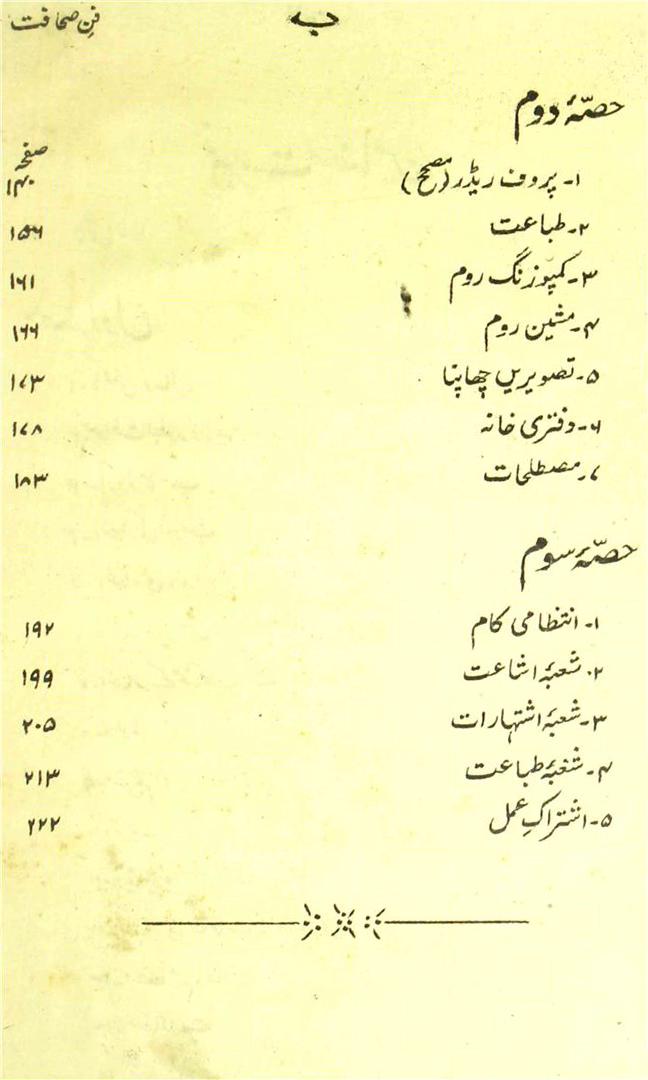 ب فنِ صحافت
حصّۂ دوم
صفحہ
۱۔ پروف ریڈر (مصحح) ۱۴۰
۲۔ طباعت ۱۵۶
۳۔ کمپوزنگ روم ۱۶۱
۴۔ مشین روم ۱۶۶
۵۔ تصویریں چھاپنا ۱۷۳
۶۔ دفتری خانہ ۱۷۸
۷۔ مصطلحات ۱۸۳
حصّۂ سوم
۱۔ انتظامی کام ۱۹۲
۲۔ شعبۂ اشاعت ۱۹۹
۳۔ شعبۂ اشتہارات ۲۰۵
۴۔ شعبۂ طباعت ۲۱۳
۵۔ اشتراکِ عمل ۲۲۲